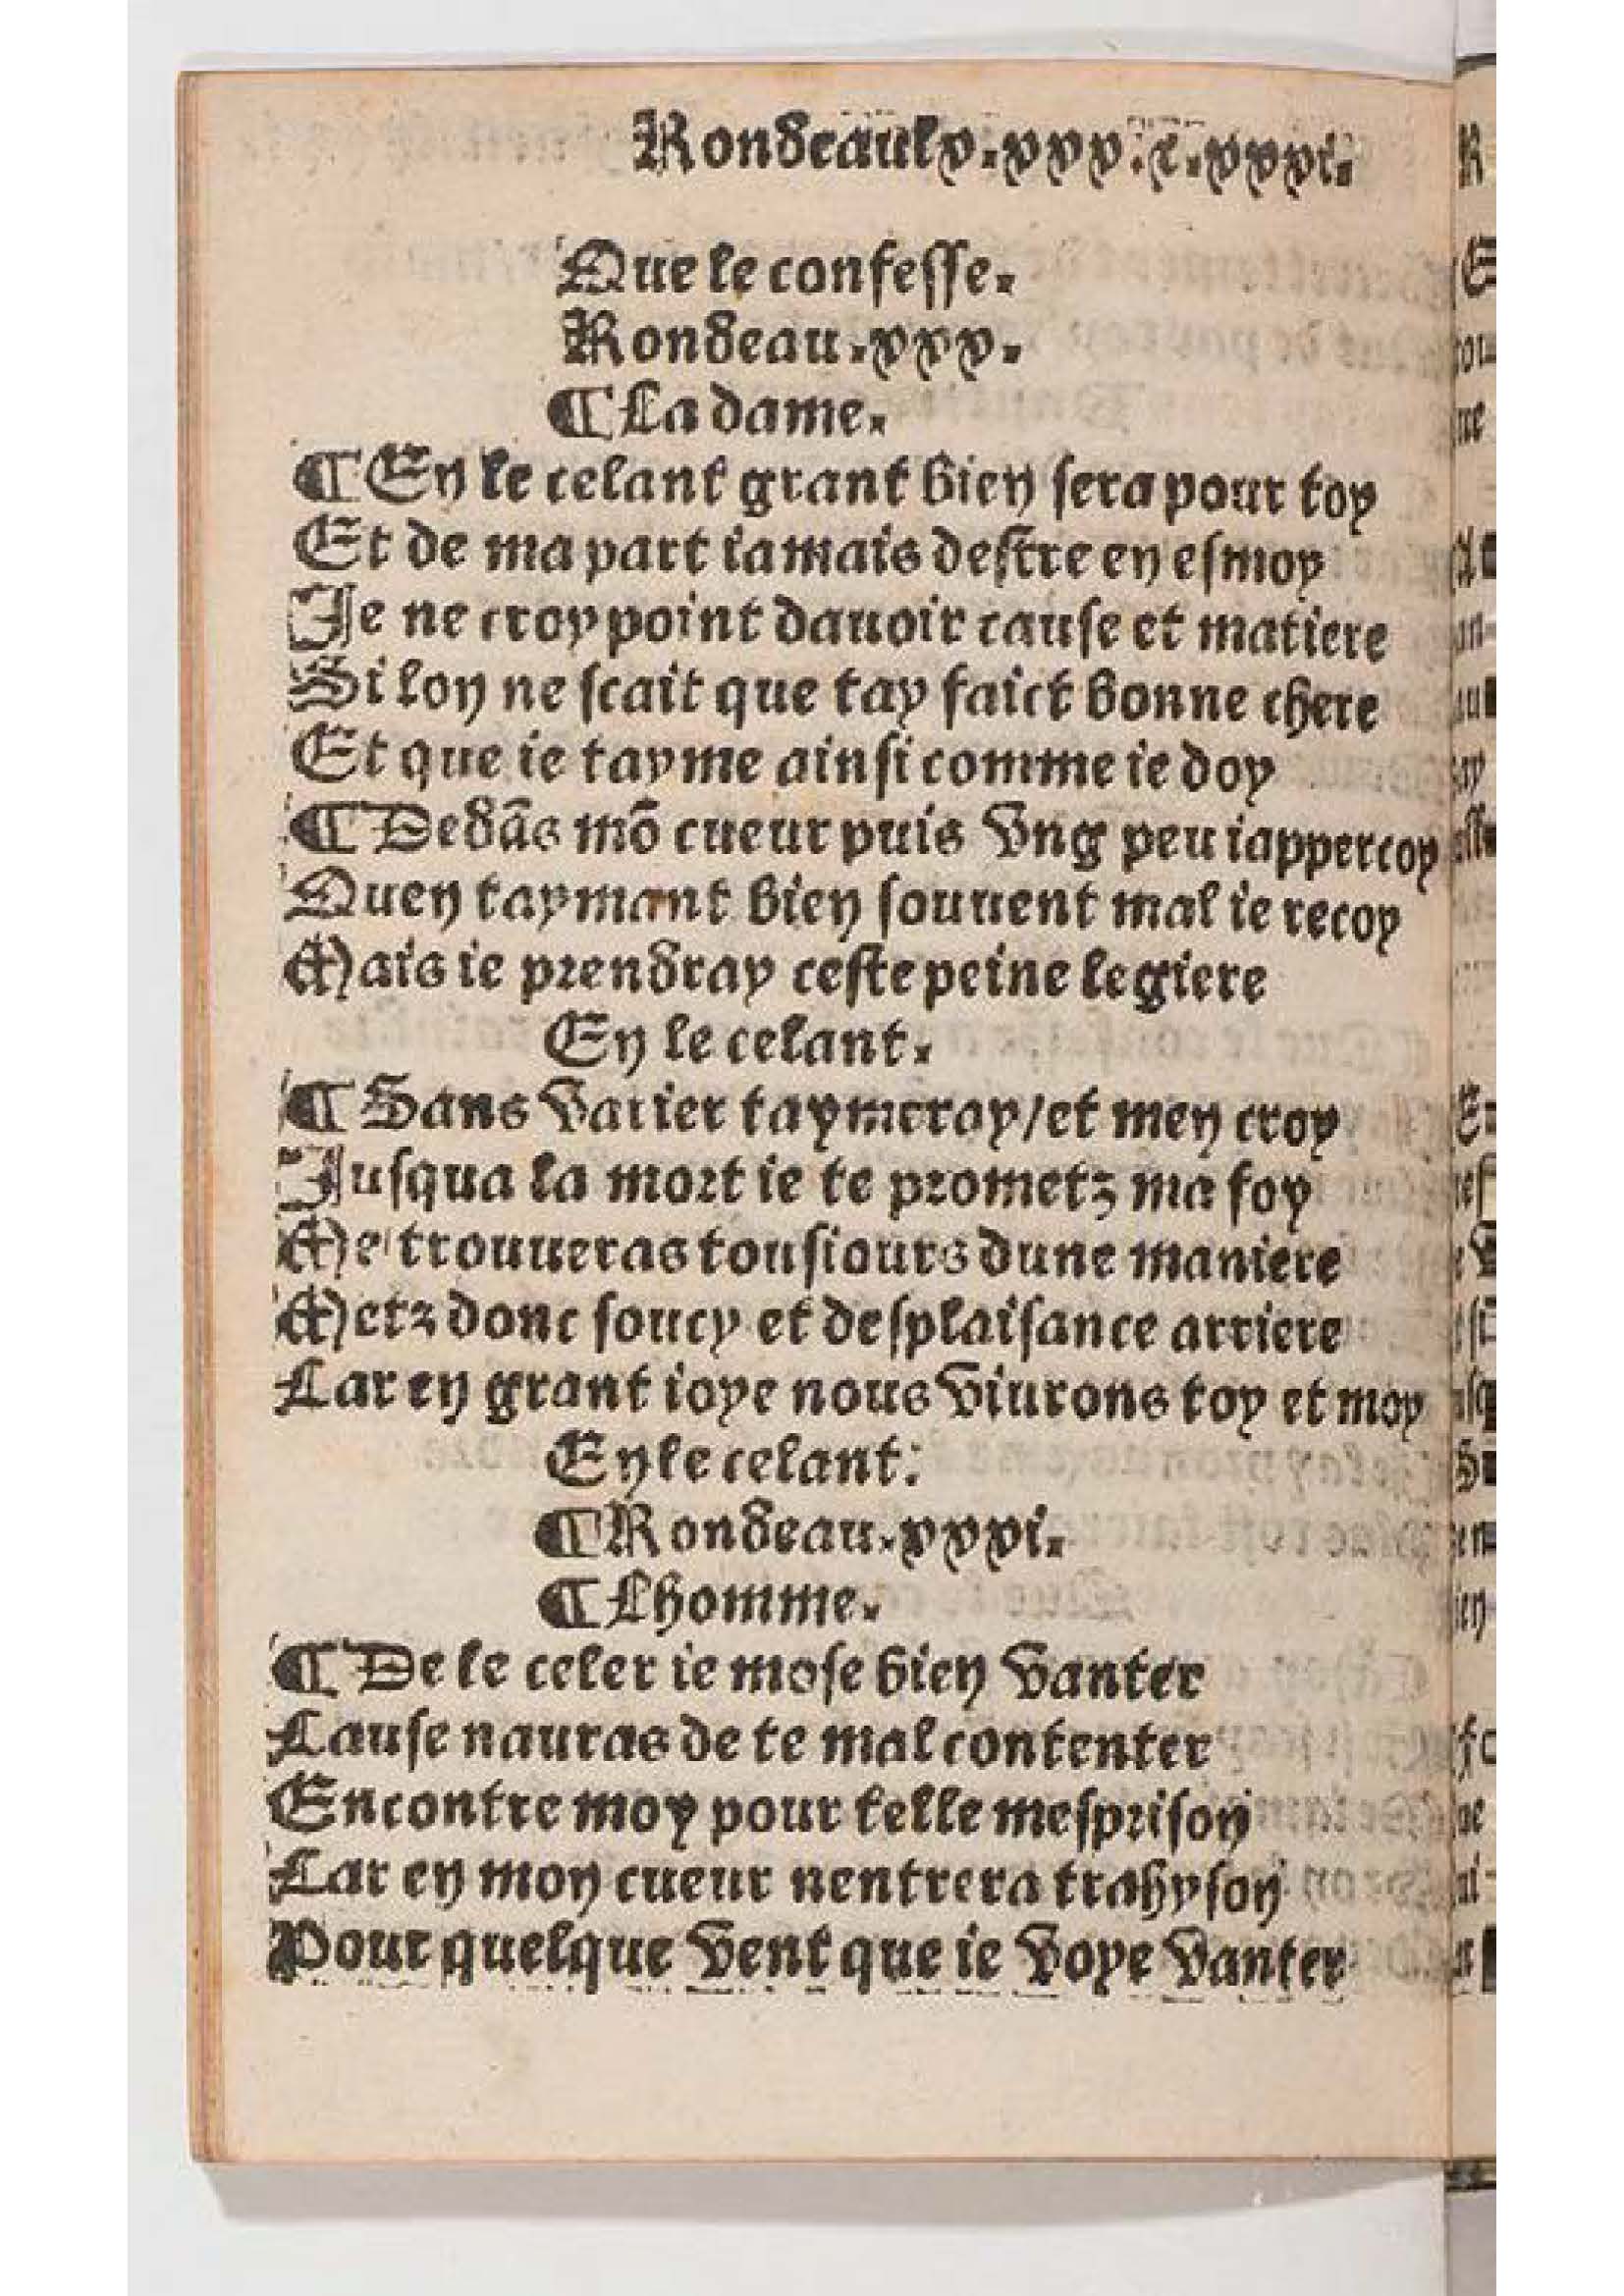 Rondeaulx.xxx.c.xxxi.
Que le confesse.
Rondeau.xxx.
¶La dame.
¶En le celant grant bien sera pour toy
Et de ma part iamais destre en esmoy
Je ne croy point dauoir cause et matiere
Si lon ne scait que tay faict bonne chere
Et que ie tayme ainsi comme ie doy
¶Dedãs mõ cueur puis vng peu iappercoy
Quen taymant bien souuent mal ie recoy
Mais ie prendray ceste peine legiere
En le celant.
¶Sans varier taymeray/et men croy
Jusqua la mort ie te prometz ma foy
Me trouueras tousiours dune maniere
Metz donc soucy et desplaisance arriere
Car en grant ioye nous viurons toy et moy
En le celant:
¶Rondeau.xxxi.
¶Lhomme.
¶De le celer ie mose bien vanter
Cause nauras de te mal contenter
Encontre moy pour telle mesprison
Car en mon cueur nentrera trahyson
Pour quelque vent que ie voye vanter